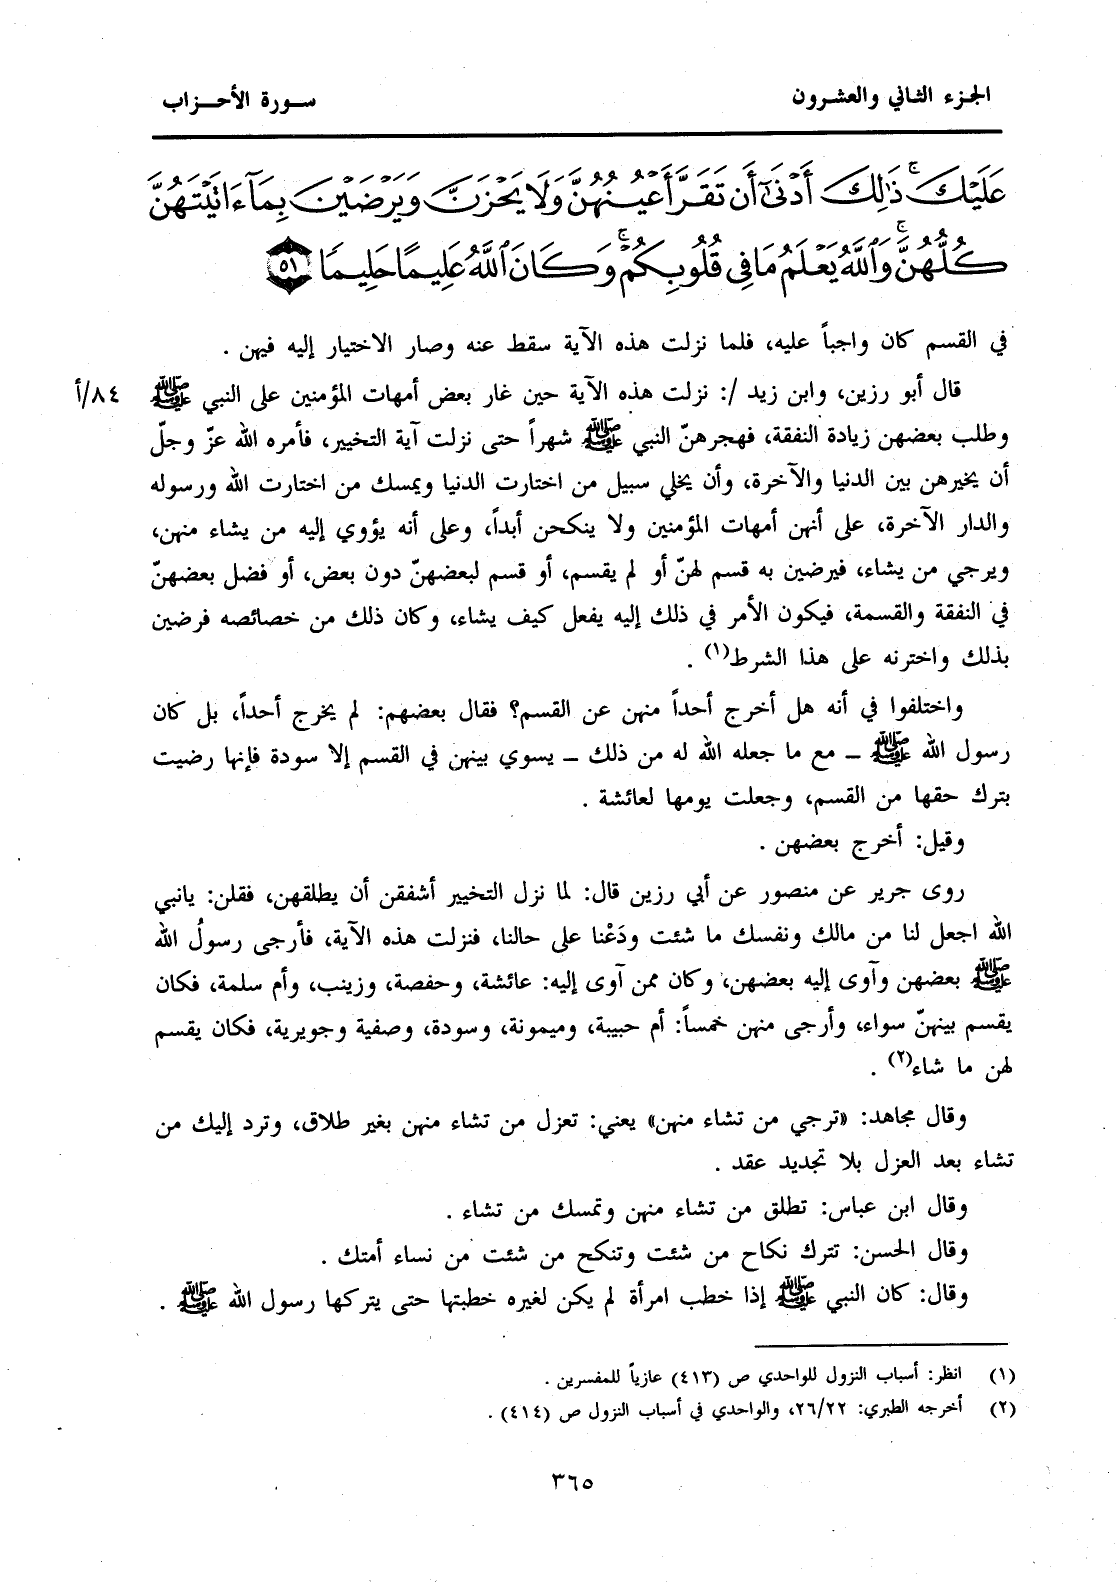 الجزء الثاني والعشرون
سورة الأحزاب
عَلَيْكَ ۚ ذَٰلِكَ أَدْنَىٰٓ أَن تَقَرَّ أَعْيُنُهُنَّ وَلَا يَحْزَنَّ وَيَرْضَيْنَ بِمَآ ءَاتَيْتَهُنَّ
كُلُّهُنَّ ۚ وَٱللَّهُ يَعْلَمُ مَا فِى قُلُوبِكُمْ ۚ وَكَانَ ٱللَّهُ عَلِيمًا حَلِيمًا ﴿٥١﴾
في القسم كان واجباً عليه، فلما نزلت هذه الآية سقط عنه وصار الاختيار إليه فيهن .
قال أبو رزين، وابن زيد /: نزلت هذه الآية حين غار بعض أمهات المؤمنين على النبي ﷺ ٨٤/أ
وطلب بعضهن زيادة النفقة، فهجرهنّ النبي ﷺ شهراً حتى نزلت آية التخيير، فأمره الله عزّ وجلّ
أن يخيرهن بين الدنيا والآخرة، وأن يخلي سبيل من اختارت الدنيا ويمسك من اختارت الله ورسوله
والدار الآخرة، على أنهن أمهات المؤمنين ولا ينكحن أبداً، وعلى أنه يؤوي إليه من يشاء منهن،
ويرجي من يشاء، فيرضين به قسم لهنّ أو لم يقسم، أو قسم لبعضهنّ دون بعض، أو فضل بعضهنّ
في النفقة والقسمة، فيكون الأمر في ذلك إليه يفعل كيف يشاء، وكان ذلك من خصائصه فرضين
بذلك واخترنه على هذا الشرط(١) .
واختلفوا في أنه هل أخرج أحداً منهن عن القسم؟ فقال بعضهم: لم يخرج أحداً، بل كان
رسول الله ﷺ ــ مع ما جعله الله له من ذلك ــ يسوي بينهن في القسم إلا سودة فإنها رضيت
بترك حقها من القسم، وجعلت يومها لعائشة .
وقيل: أخرج بعضهن .
روى جرير عن منصور عن أبي رزين قال: لما نزل التخيير أشفقن أن يطلقهن، فقلن: يانبي
الله اجعل لنا من مالك ونفسك ما شئت ودَعْنا على حالنا، فنزلت هذه الآية، فأرجى رسولُ الله
ﷺ بعضهن وآوى إليه بعضهن، وكان ممن آوى إليه: عائشة، وحفصة، وزينب، وأم سلمة، فكان
يقسم بينهنّ سواء، وأرجى منهن خمساً: أم حبيبة، وميمونة، وسودة، وصفية وجويرية، فكان يقسم
لهن ما شاء(٢) .
وقال مجاهد: «ترجي من تشاء منهن» يعني: تعزل من تشاء منهن بغير طلاق، وترد إليك من
تشاء بعد العزل بلا تجديد عقد .
وقال ابن عباس: تطلق من تشاء منهن وتمسك من تشاء .
وقال الحسن: تترك نكاح من شئت وتنكح من شئت من نساء أمتك .
وقال: كان النبي ﷺ إذا خطب امرأة لم يكن لغيره خطبتها حتى يتركها رسول الله ﷺ .
(١) انظر: أسباب النزول للواحدي ص (٤١٣) عازياً للمفسرين .
(٢) أخرجه الطبري: ٢٦/٢٢، والواحدي في أسباب النزول ص (٤١٤) .
٣٦٥